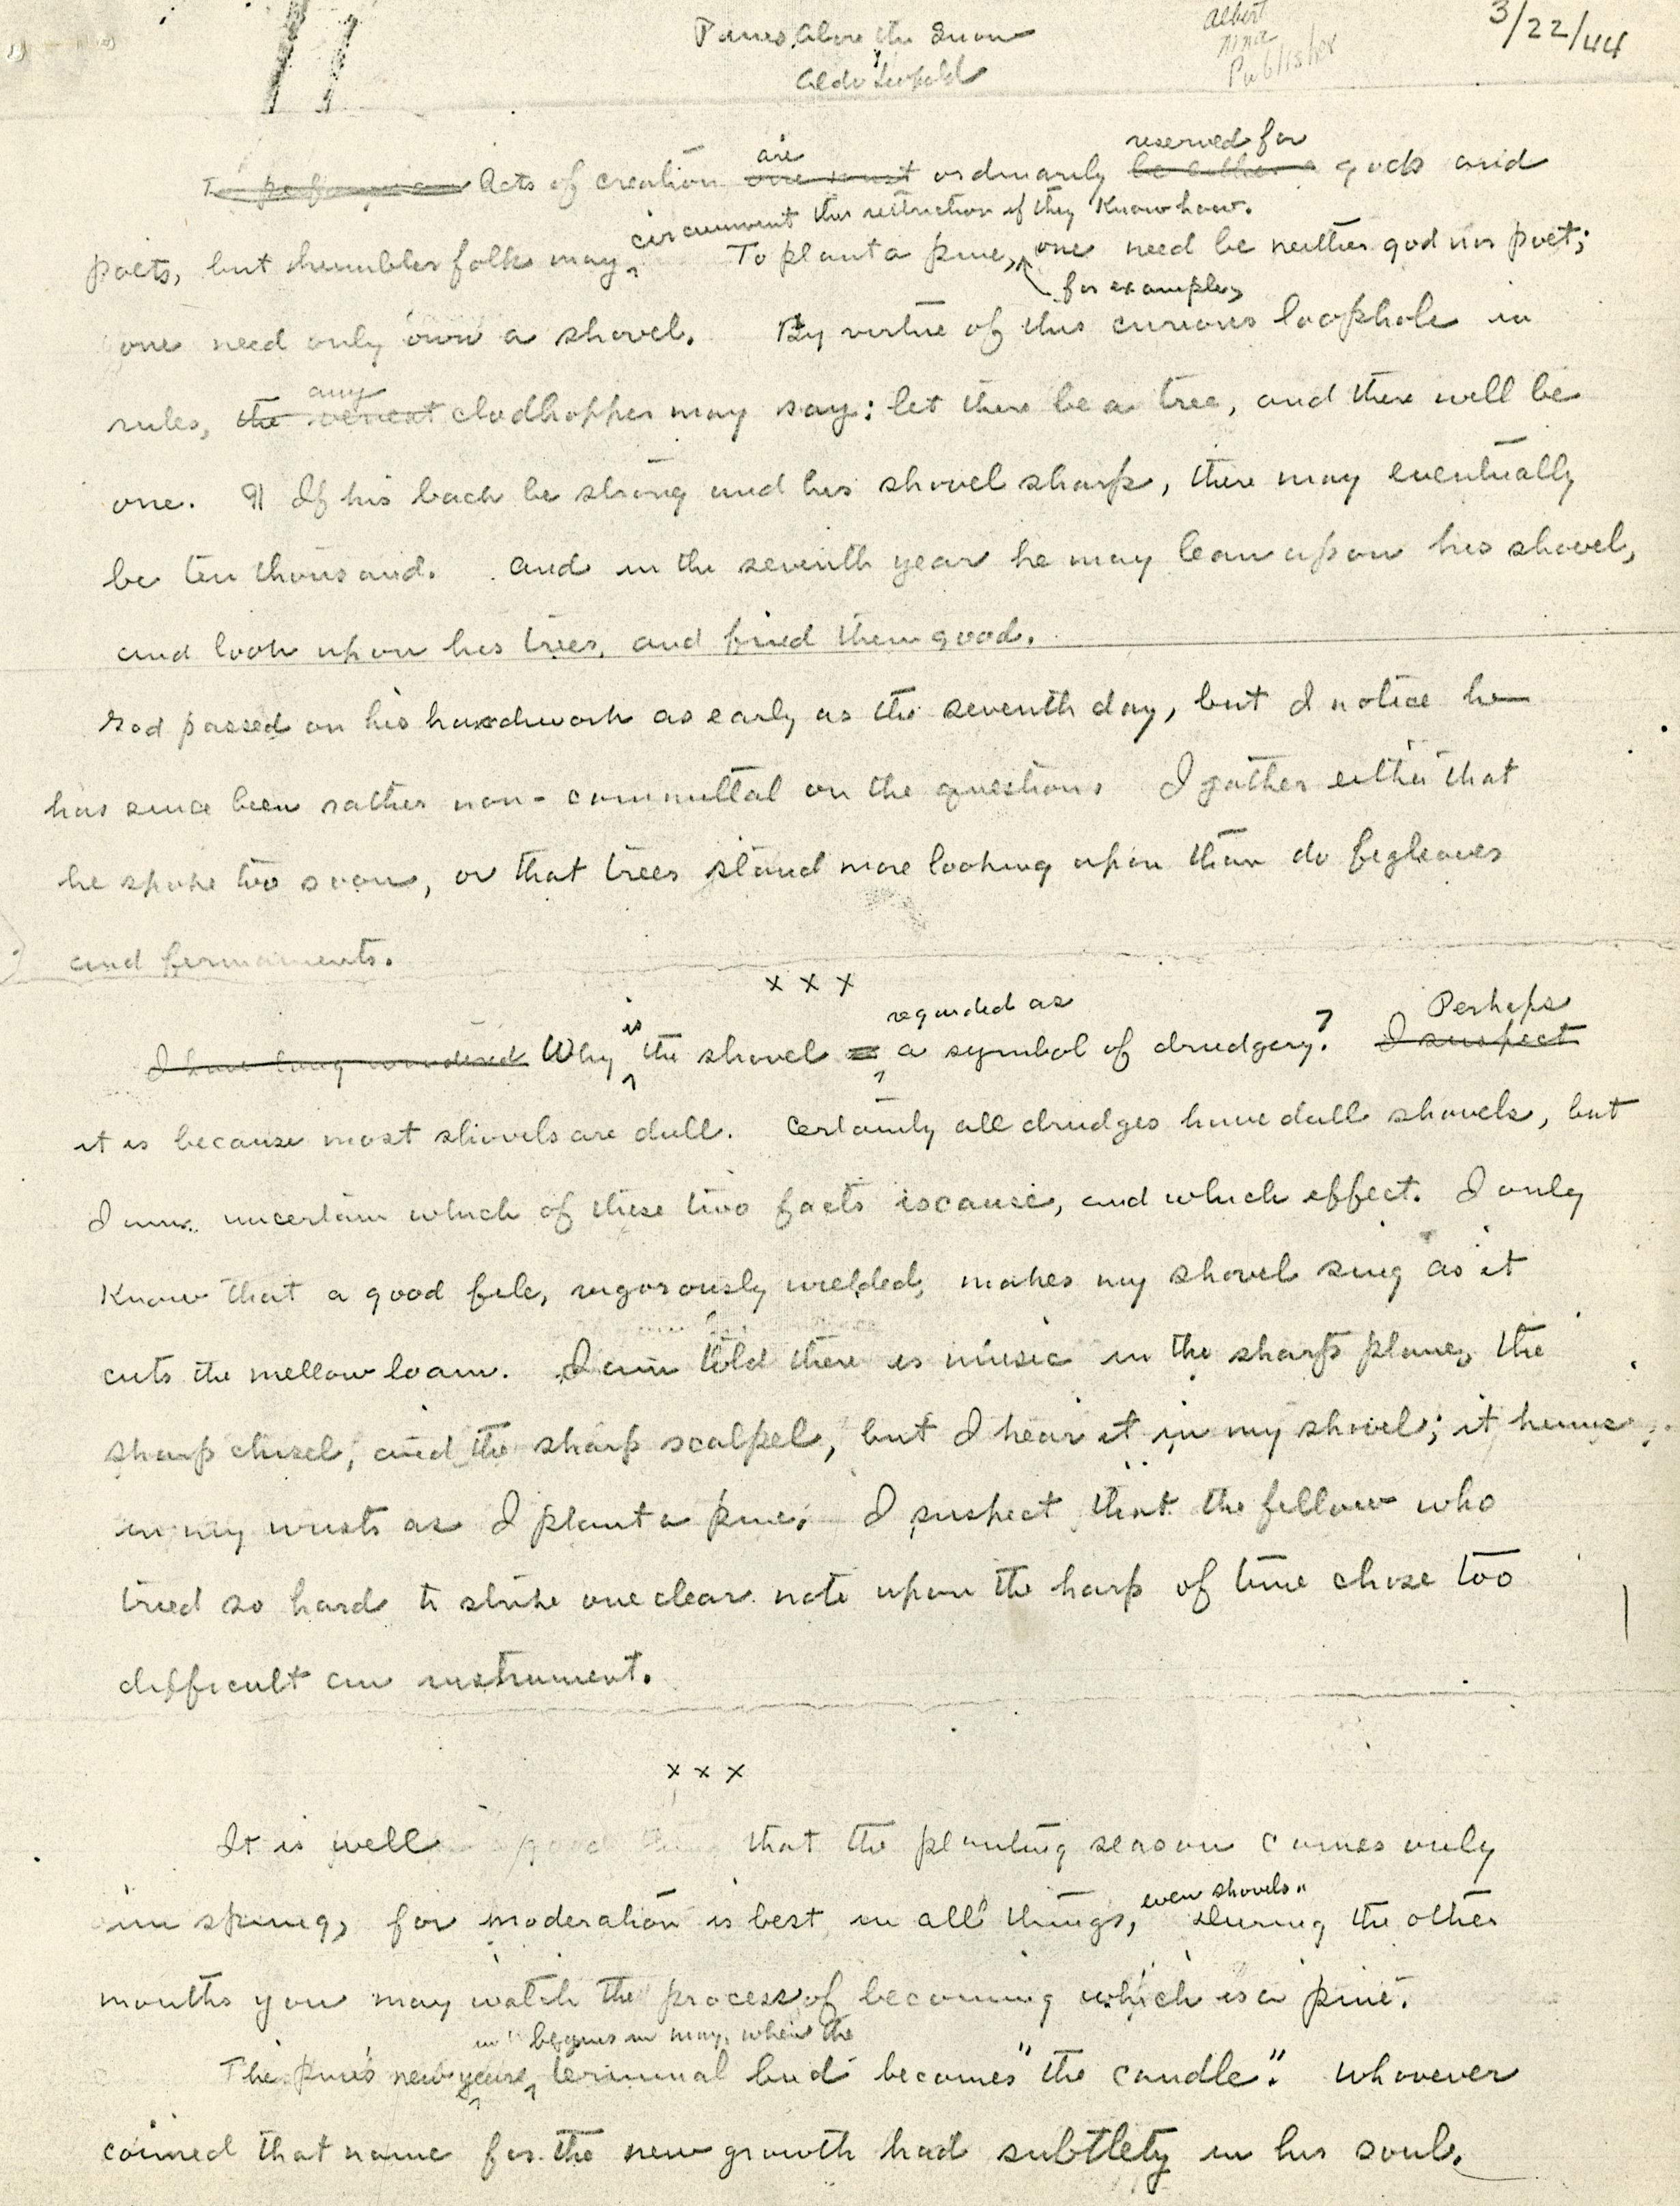 Pines Above the Snow
Albert
Nina
Publisher
3/22/44
by
Aldo Leopold
are
reserved for
Acts of creation one must ordinarily be either a gods and
circumvent this restriction if they know how.
poets, but humbler folk may To plant a pine, one need be neither god nor poet;
for example,
one need only own a shovel. By virtue of this curious loophole in
any
rules, the veriest clodhopper may say: let there be a tree, and there will be
one. ¶ If his back be strong and his shovel sharp, there may eventually
be ten thousand. And in the seventh year he may lean upon his shovel,
and look upon his trees, and find them good.
God passed on his handiwork as early as the seventh day, but I notice he
has since been rather non-committal on the question. I gather either that
he spoke too soon, or that trees stand more looking upon than do figleaves
and firmaments.
x x x
is
regarded as
Perhaps
I have long wondered Why the shovel a symbol of drudgery? I suspect
it is because most shovels are dull. Certainly all drudges have dull shovels, but
I am uncertain which of these two facts is cause, and which effect. I only
know that a good file, vigorously wielded, makes my shovel sing as it
cuts the mellow loam. I am told there is music in the sharp plane, the
sharp chisel, and the sharp scalpel, but I hear it in my shovel; it hums
in my wrists as I plant a pine. I suspect that the fellow who
tried so hard to strike one clear note upon the harp of time chose too
difficult an instrument.
x x x
It is well that the planting season comes only
even shovels.
in spring, for moderation is best in all things, During the other
months you may watch the process of becoming which is a pine.
begins in May, when the
The pine's new year terminal bud becomes "the candle". Whoever
coined that name for the new growth had subtlety in his soul.